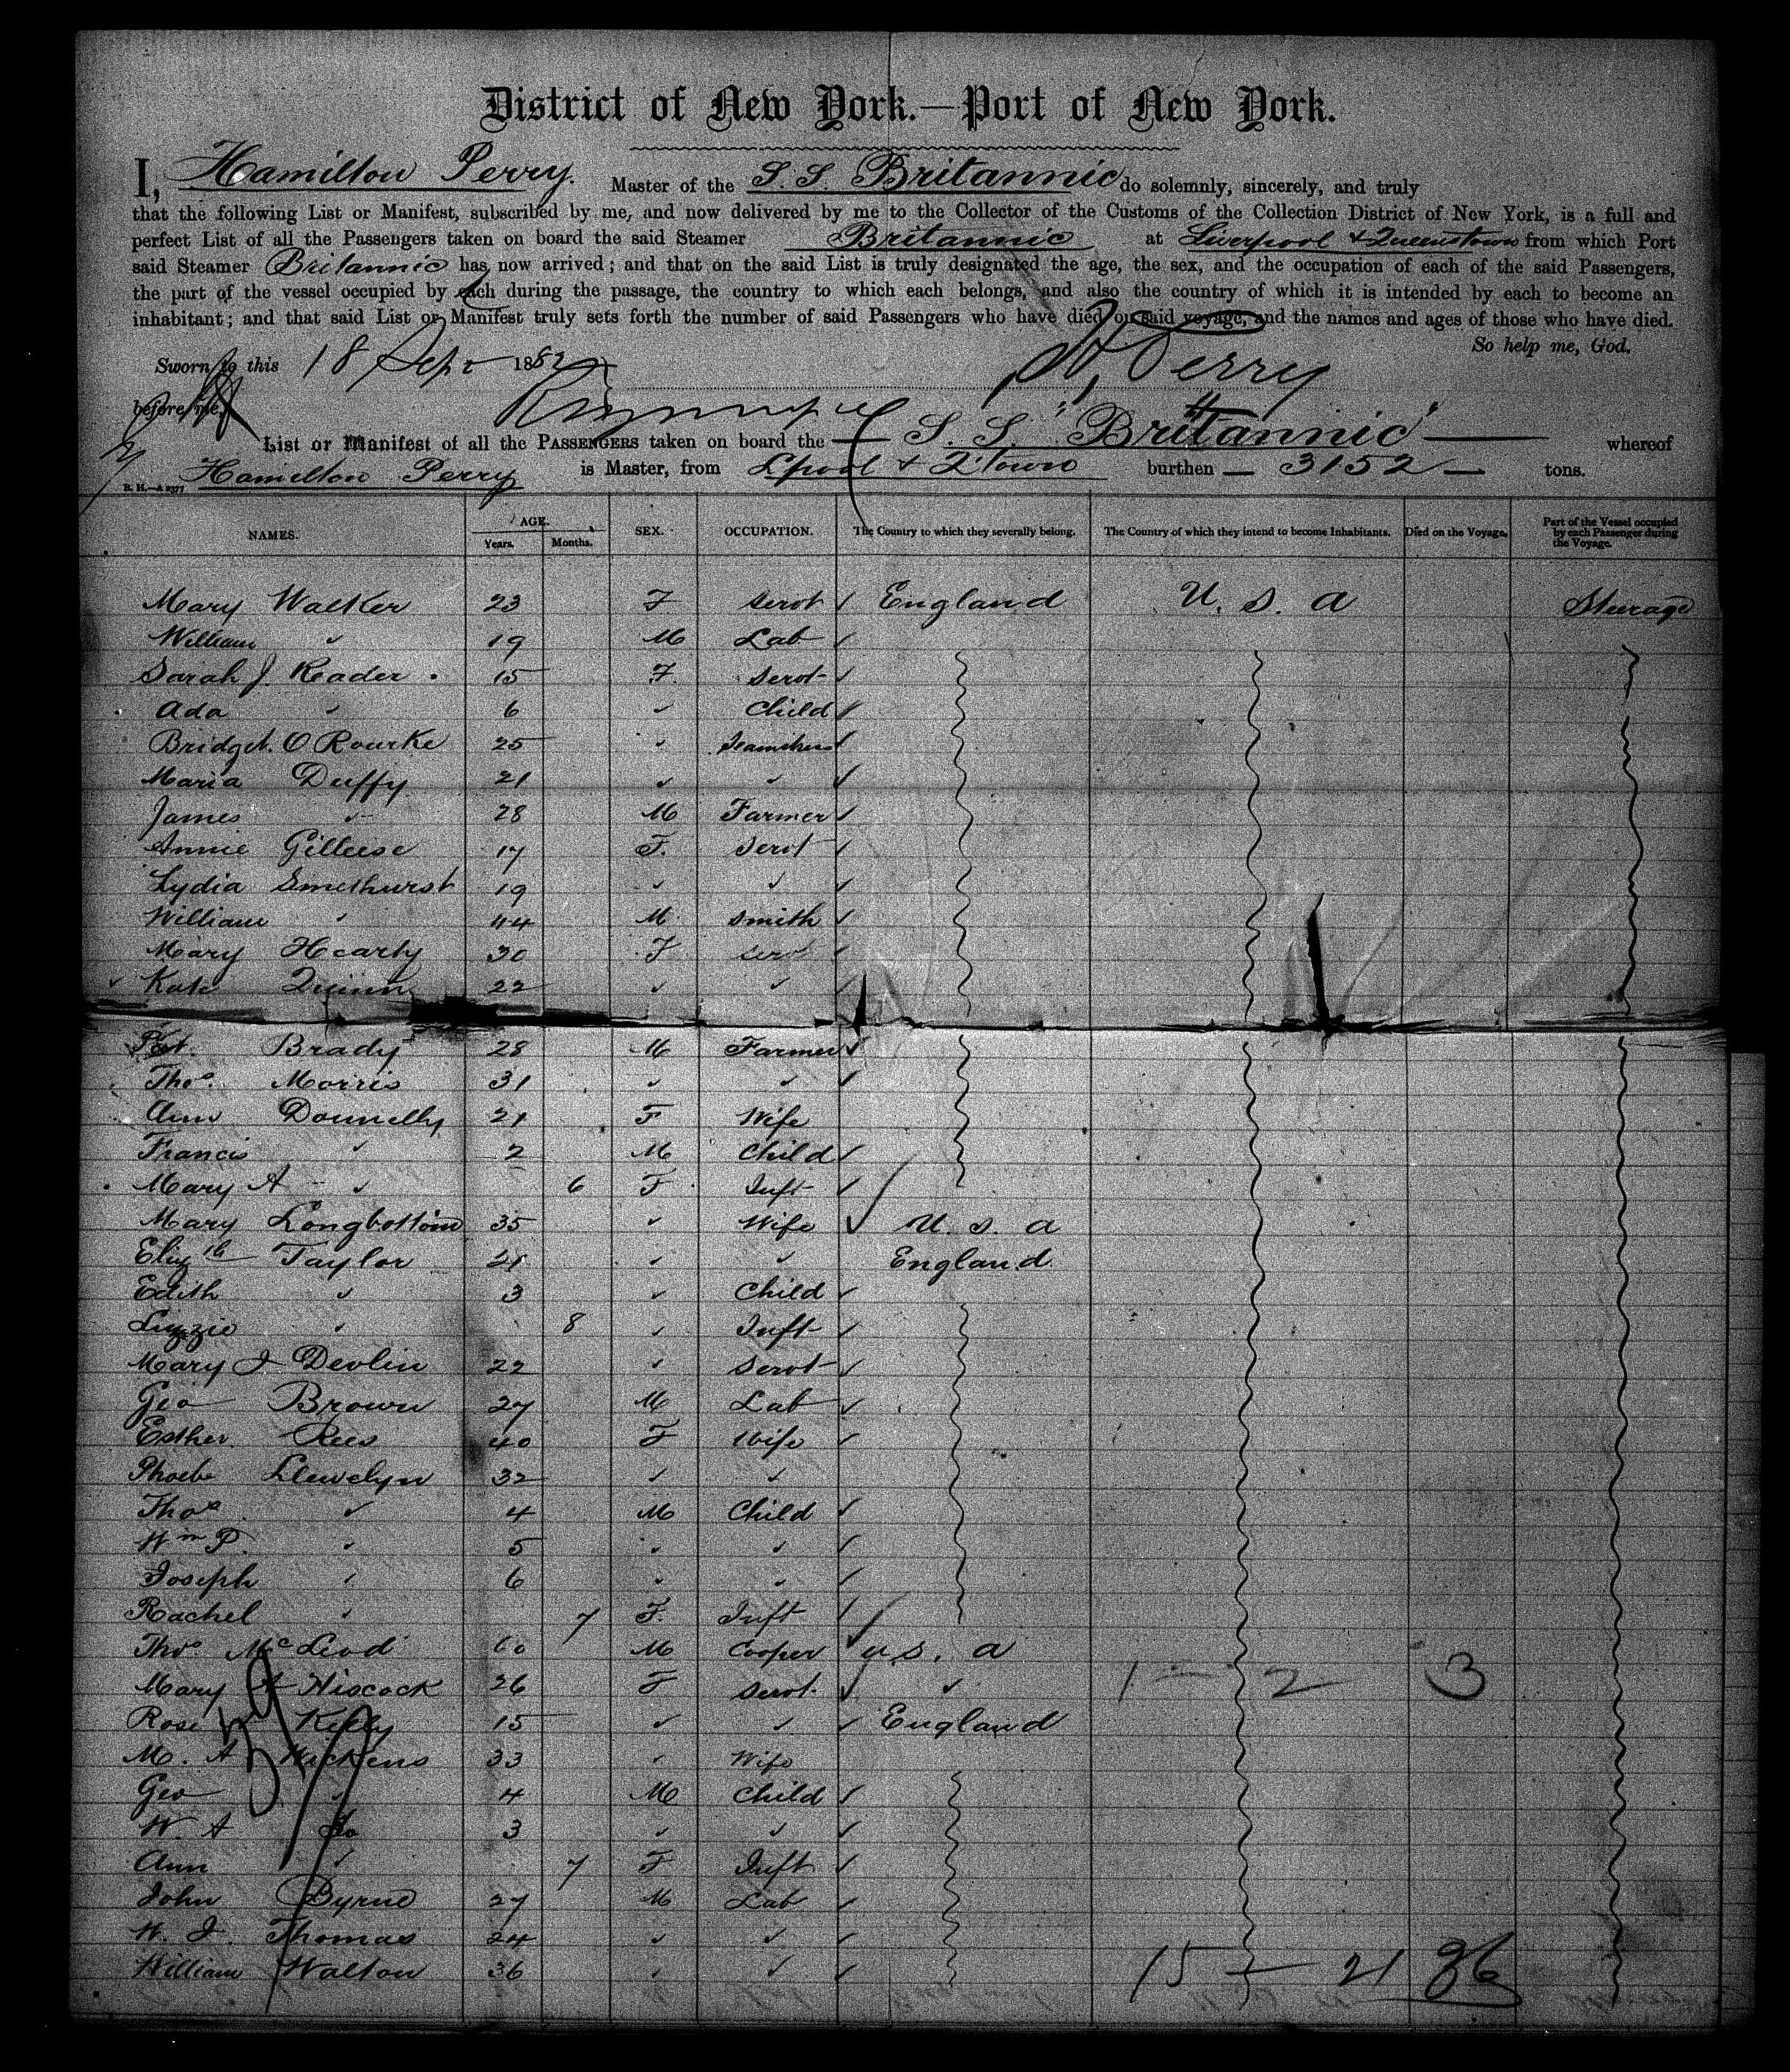 District of New York.—Port of New York.
I, Hamilton Perry. Master of the S. S. Britannic do solemnly, sincerely, and truly
that the following List or Manifest, subscribed by me, and now delivered by me to the Collector of the Customs of the Collection District of New York, is a full and
perfect List of all the Passengers taken on board the said Steamer Britannic at Liverpool & Queenstown from which Port
said Steamer Britannic has now arrived; and that on the said List is truly designated the age, the sex, and the occupation of each of the said Passengers,
the part of the vessel occupied by each during the passage, the country to which each belongs, and also the country of which it is intended by each to become an
inhabitant; and that said List or Manifest truly sets forth the number of said Passengers who have died on said voyage, and the names and ages of those who have died.
So help me, God.
Sworn to this 18 Sept 1882 H. Perry
before me,
List or Manifest of all the PASSENGERS taken on board the S. S. "Britannic" whereof
Hamilton Perry is Master, from Lpool & Qtown burthen — 3152 — tons.
B. H.—A 2377
NAMES. AGE. Years. Months. SEX. OCCUPATION. The Country to which they severally belong. The Country of which they intend to become Inhabitants. Died on the Voyage. Part of the Vessel occupied by each Passenger during the Voyage.
Mary Walker 23 F Servt ✓ England U. S. A Steerage
William ✓ 19 M Lab ✓
Sarah J. Reader 15 F Servt ✓
Ada ✓ 6 ✓ Child ✓
Bridget O Rourke 25 ✓ ✓
Maria Duffy 21 ✓ ✓ ✓
James ✓ 28 M Farmer ✓
Annie Gilleese 17 F. Servt ✓
Lydia Smethurst 19 ✓ ✓ ✓
William ✓ 44 M. Smith ✓
Mary Hearty 30 F Servt ✓
Kate Quinn 22 ✓ ✓
Pat. Brady 28 M Farmer ✓
Thos. Morris 31 ✓ ✓ ✓
Ann Donnelly 21 F Wife
Francis ✓ 2 M Child ✓
Mary A ✓ 6 F Inft ✓
Mary Longbottom 35 ✓ Wife ✓ U. S. A
Elizth Taylor 21 ✓ ✓ England
Edith ✓ 3 ✓ Child ✓
Lizzie ✓ 8 ✓ Inft ✓
Mary J Devlin 22 ✓ Servt ✓
Geo Brown 27 M Lab ✓
Esther Rees 40 F Wife ✓
Phoebe Llewelyn 32 ✓ ✓
Thos ✓ 4 M Child ✓
Wm P. ✓ 5 ✓ ✓ ✓
Joseph ✓ 6 ✓ ✓ ✓
Rachel ✓ 7 F. Inft ✓
Thos. McLeod 60 M Cooper ✓ U. S. A
Mary A Hiscock 26 F Servt. ✓ ✓ 1 - 2 3
Rose Kelly 15 ✓ ✓ ✓ England
M. A 33 ✓ Wife
Geo ✓ 4 M Child ✓
W. A Do 3 ✓ ✓ ✓
Ann ✓ 7 F Inft ✓
John Byrne 27 M Lab ✓
W. J. Thomas 24 ✓ ✓ ✓
William Walton 36 ✓ ✓ ✓ 15 + 21 36